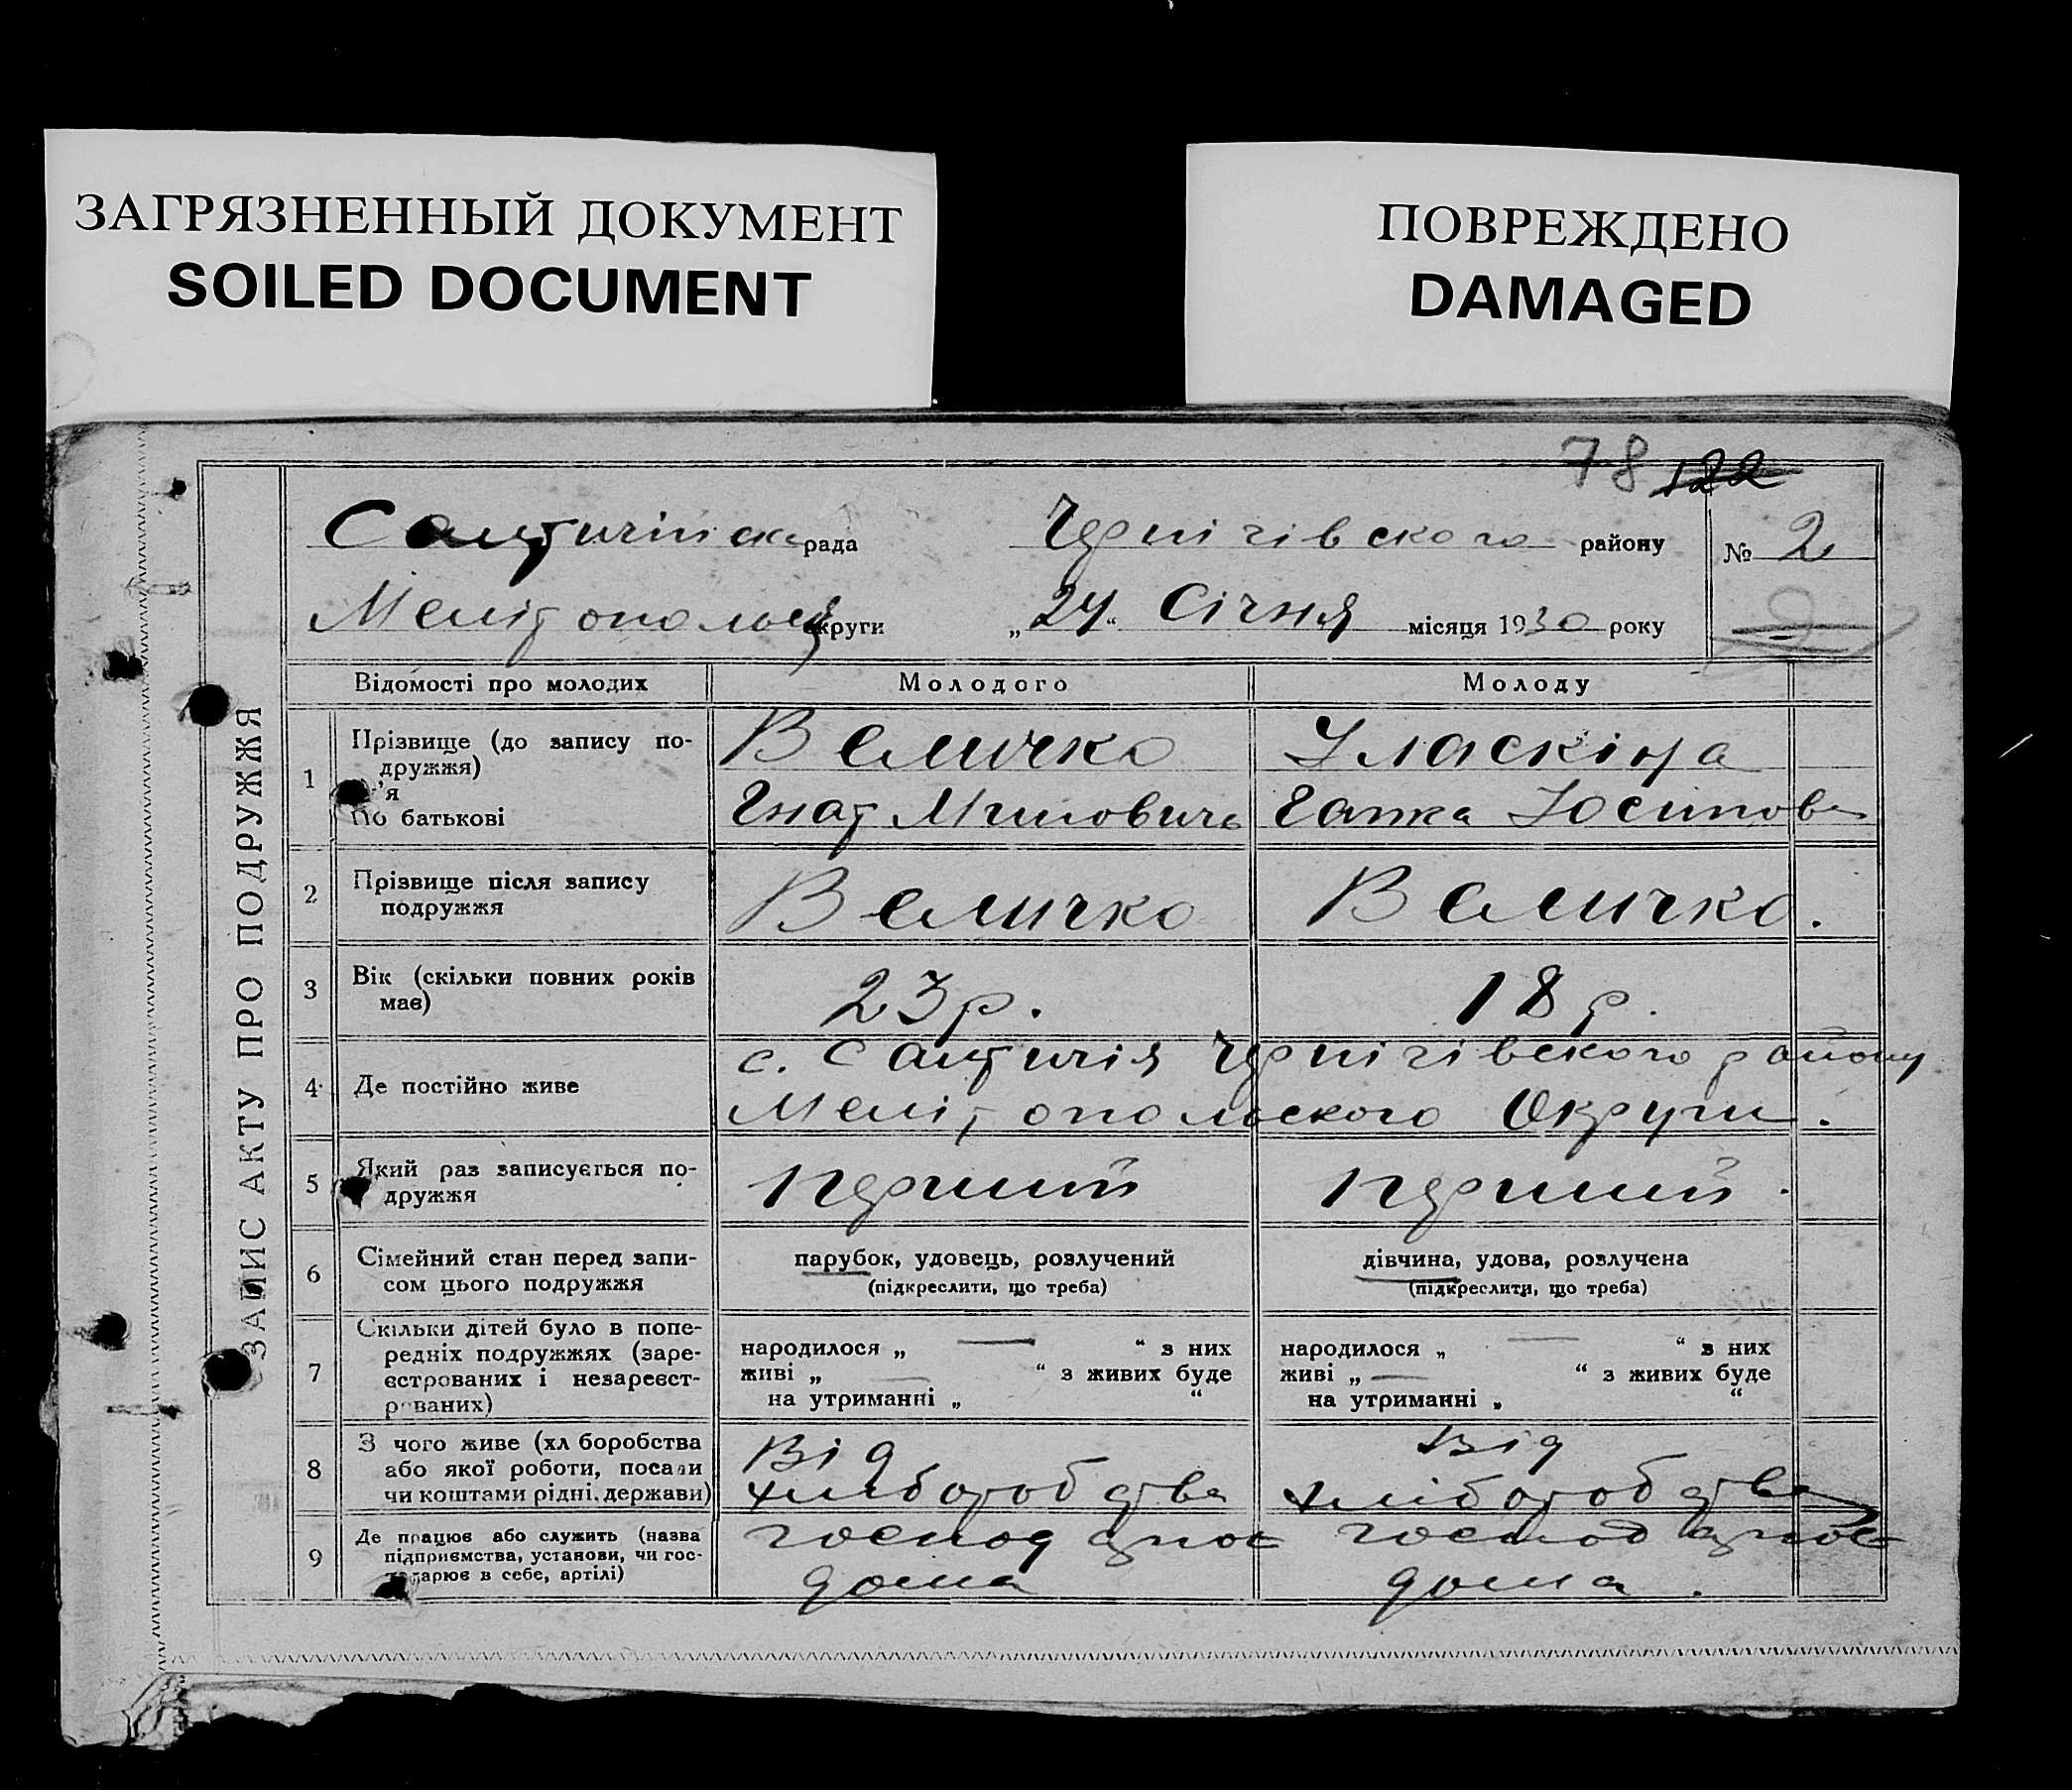 ЗАГРЯЗНЕННЫЙ ДОКУМЕНТ
SOILED DOCUMENT
ПОВРЕЖДЕНО
DAMAGED
78 122
Салтичійска рада Чернігівского району № 2
Мелітопольс округи „24“ Січня місяця 1930 року
ЗАПИС АКТУ ПРО ПОДРУЖЖЯ
Відомості про молодих Молодого Молоду
1 Прізвище (до запису подружжя) Величко
'я
По батькові Гнат Гапка Юсипов
2 Прізвище після запису Величко Величко.
подружжя
3 Вік (скільки повних років 23 р. 18 р.
має)
4 Де постійно живе с. Салтичія Чернігівского району
Мелітопольского Округи.
5 Який раз записується по- 1 перший 1 перший.
дружжя
6 Сімейний стан перед запи- парубок, удовець, розлучений дівчина, удова, розлучена
сом цього подружжя (підкреслити, що треба) (підкреслити, що треба)
7 Скільки дітей було в попе-
редніх подружжях (заре- народилося „ — “ з них народилося „ — “ з них
єстрованих і незареєст- живі „ — “ з живих буде живі „ — “ з живих буде
рованих) на утриманні „ “ на утриманні „ “
8 З чого живе (хл боробства Від Від
або якої роботи, посади
чи коштами рідні, держави) хліборобства хліборобства
9 Де працює або служить (назва
підприємства, установи, чи гос-
подарює в себе, артілі) дома дома.